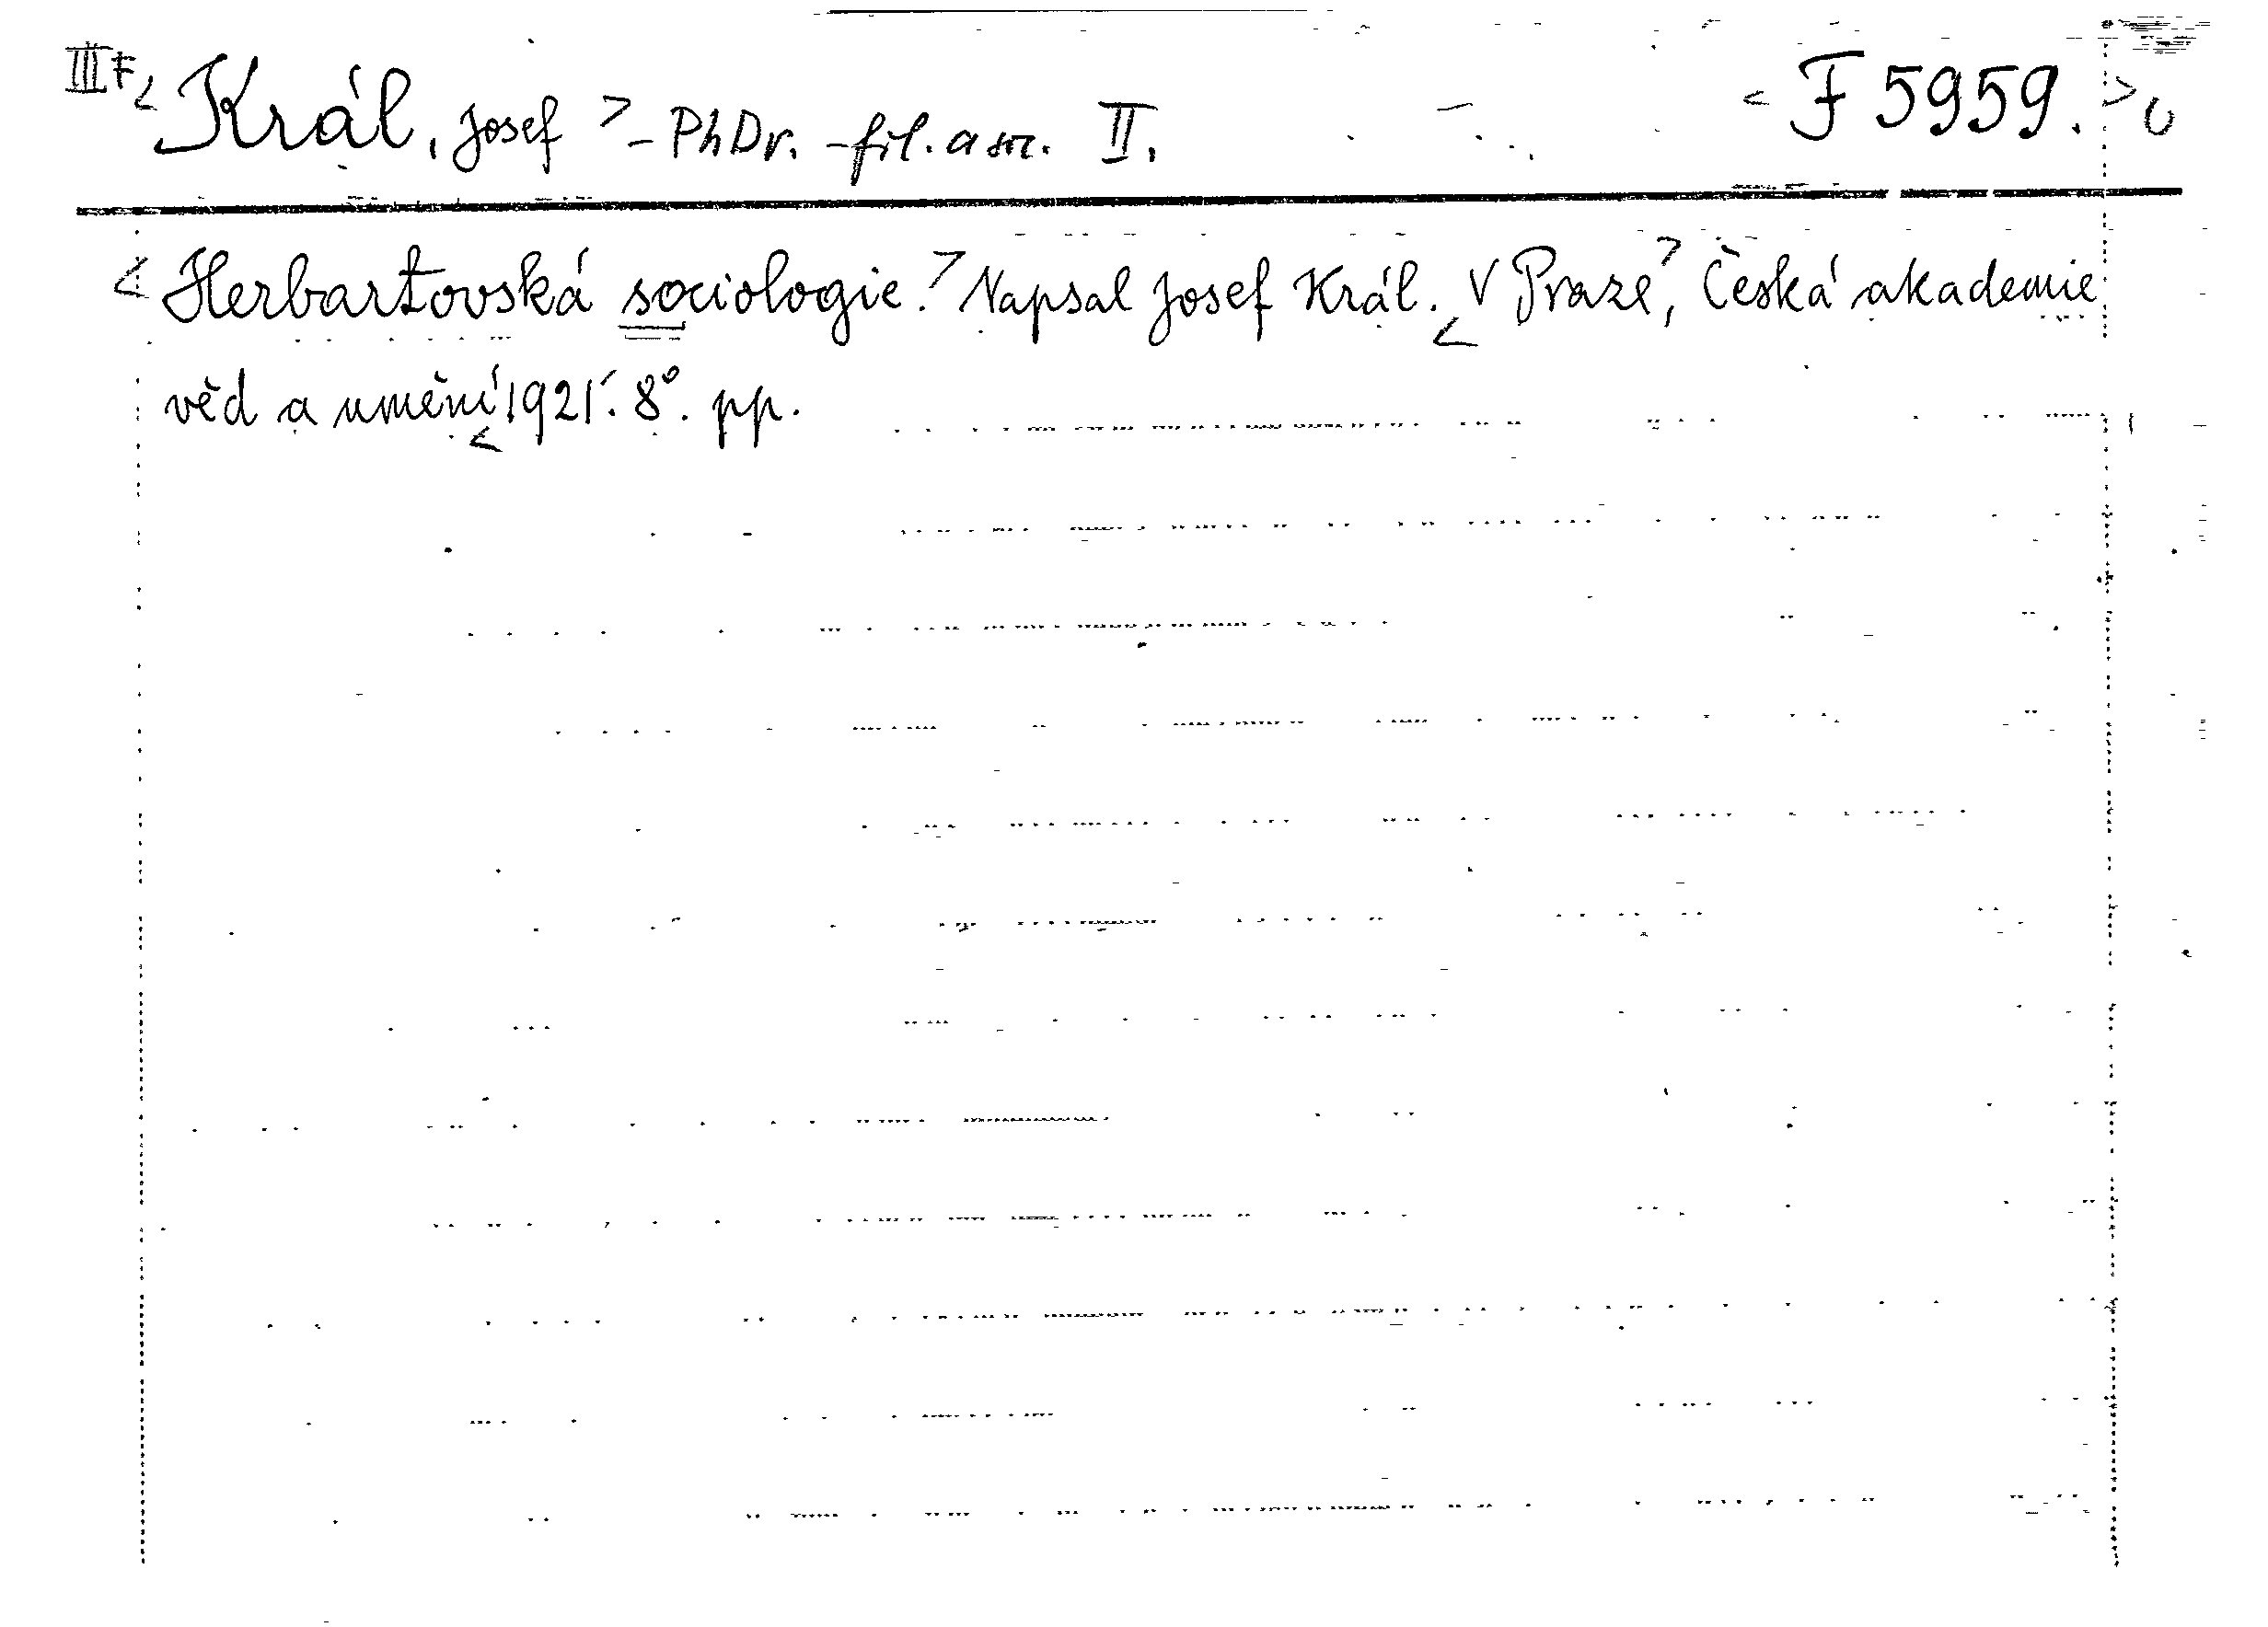 III F <Král, Josef> - PhDr. - fil. a soc. II. <F 5959.> U
<Herbartovská sociologie.> Napsal Josef Král. <V Praze>, Česká akademie
věd a umění <1921. 8°. pp.